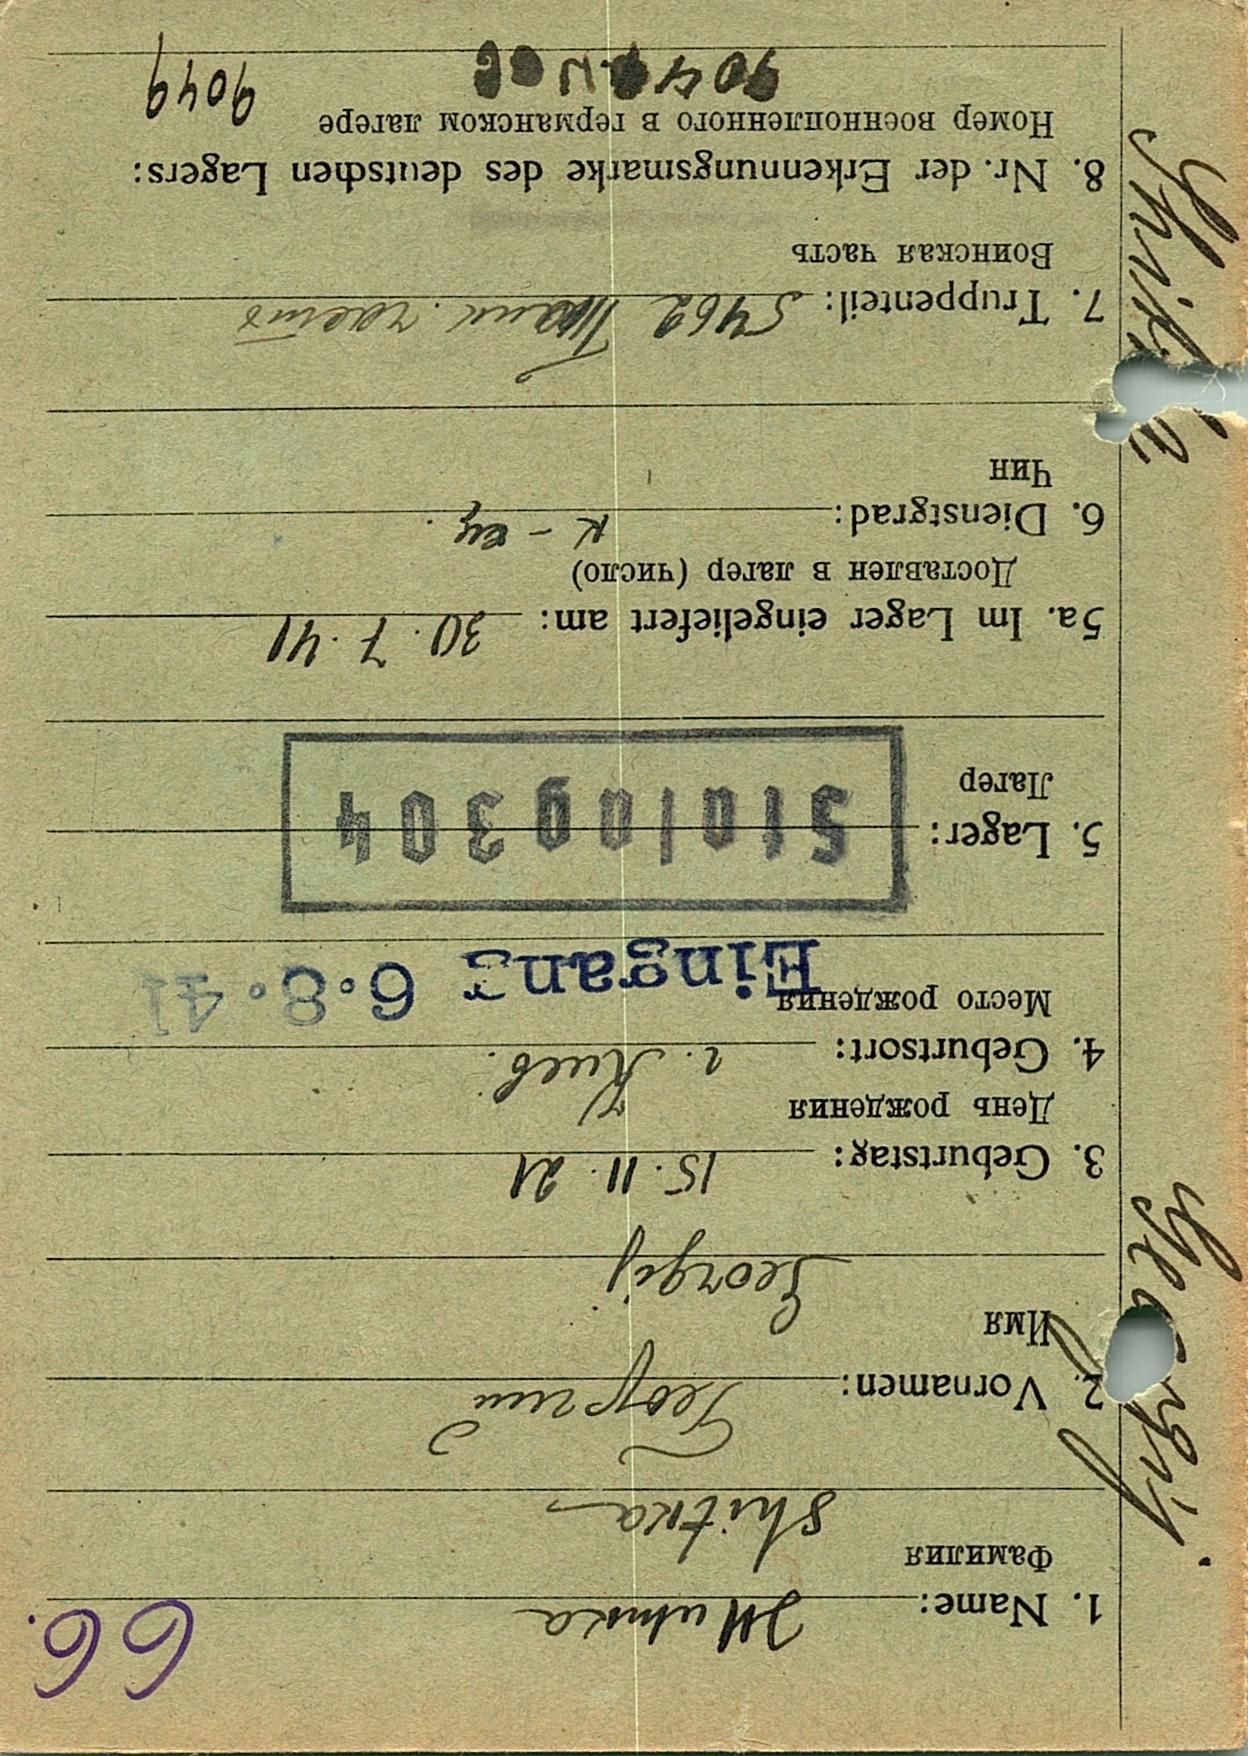 66.
1. Name: Житка
Фамилия
Shitka
2. Vornamen: Георгий
Имя
Georgij
3. Geburtstag: 15.11.21
День рождения
4. Geburtsort: г. Киев.
Место рождения
Eingang 6.8.41
5. Lager: Stalag 304
Лагер
5a. Im Lager eingeliefert am: 30.7.41
Доставлен в лагер (число)
6. Dienstgrad:
Чин
7. Truppenteil: 5462 Танк. часть
Воинская часть
8. Nr. der Erkennungsmarke des deutschen Lagers:
Номер военнопленного в германском лагере
9049
Georgij